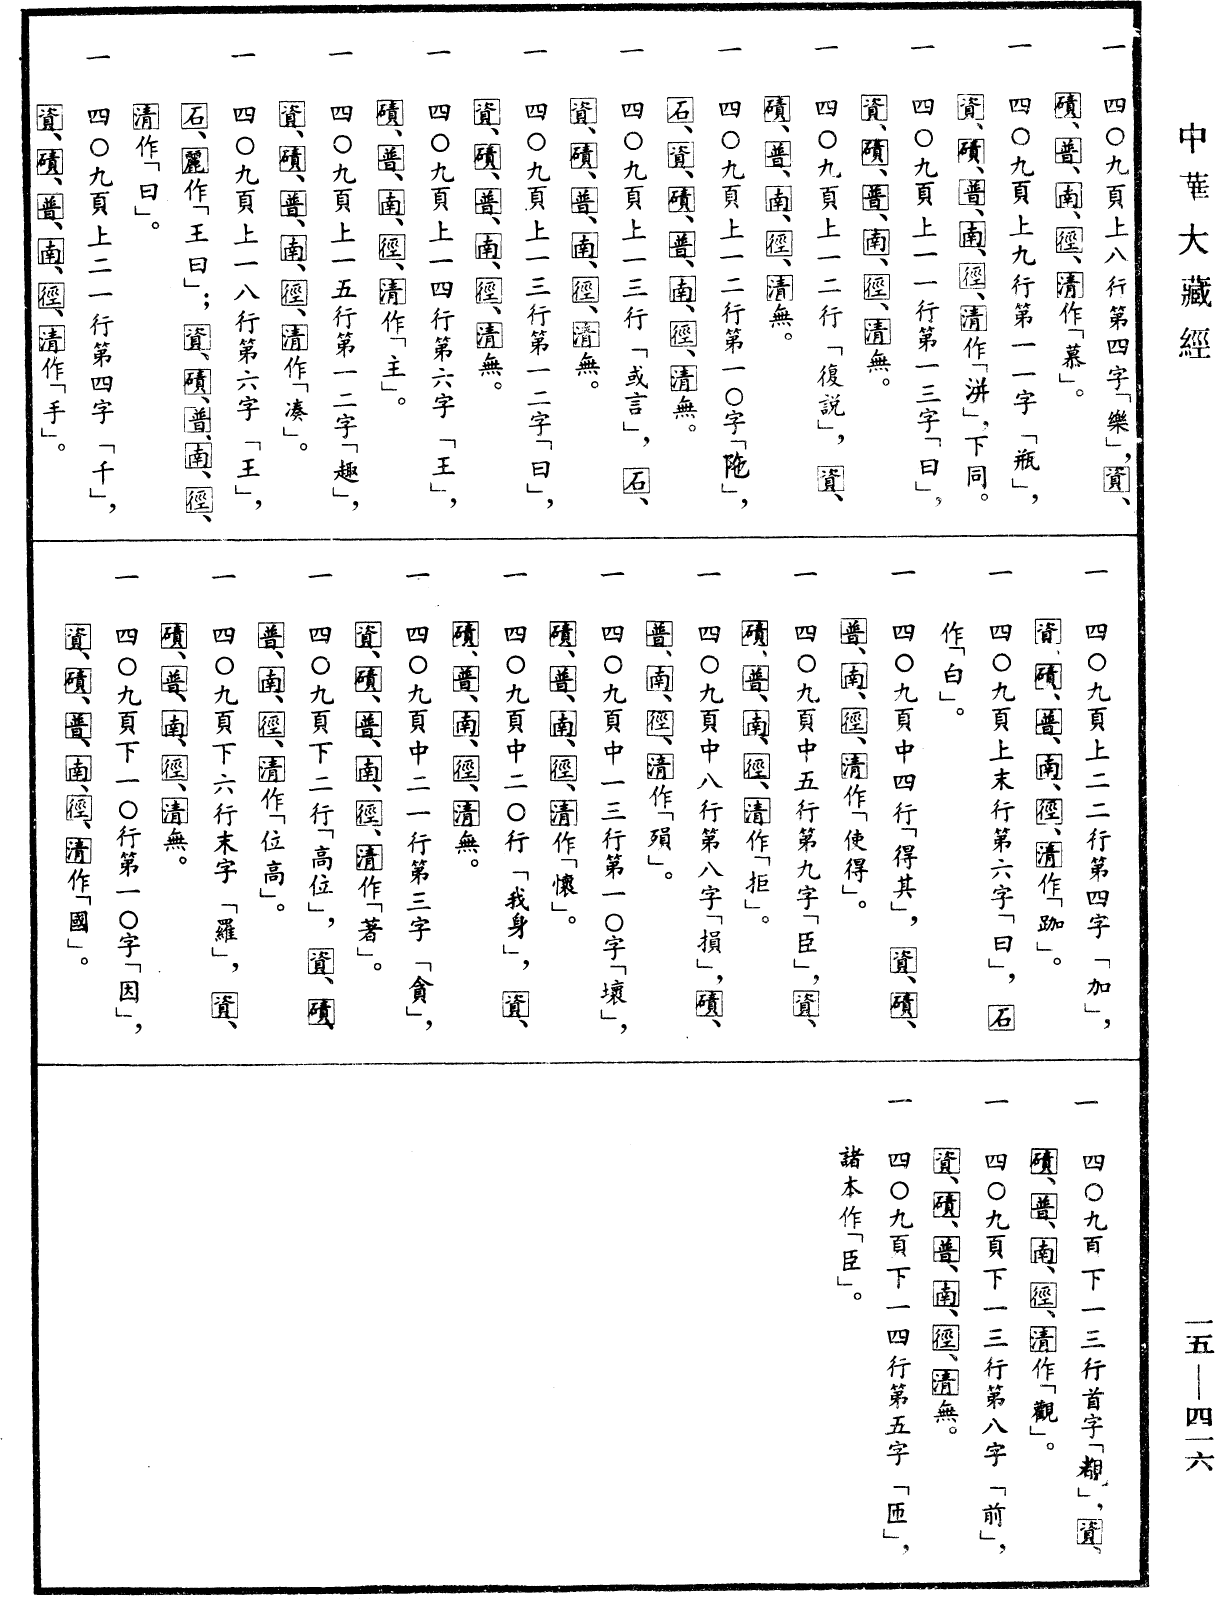 中華大藏經
一　四〇九頁上八行第四字「樂」，資、
磧、普、南、徑、清作「慕」。
一　四〇九頁上九行第一一字「瓶」，
資、磧、普、南、徑、清作「洴」，下同。
一　四〇九頁上一一行第一三字「曰」，
資、磧、普、南、徑、清無。
一　四〇九頁上一二行「復説」，資、
磧、普、南、徑、清無。
一　四〇九頁上一二行第一〇字「陁」，
石、資、磧、普、南、徑、清無。
一　四〇九頁上一三行「或言」，石、
資、磧、普、南、徑、清無。
一　四〇九頁上一三行第一二字「曰」，
資、磧、普、南、徑、清無。
一　四〇九頁上一四行第六字「王」，
磧、普、南、徑、清作「主」。
一　四〇九頁上一五行第一二字「趣」，
資、磧、普、南、徑、清作「凑」。
一　四〇九頁上一八行第六字「王」，
石、麗作「王曰」；資、磧、普、南、徑、
清作「曰」。
一　四〇九頁上二一行第四字「千」，
資、磧、普、南、徑、清作「手」。
一　四〇九頁上二二行第四字「加」，
資、磧、普、南、徑、清作「跏」。
一　四〇九頁上末行第六字「曰」，石
作「白」。
一　四〇九頁中四行「得其」，資、磧、
普、南、徑、清作「使得」。
一　四〇九頁中五行第九字「臣」，資、
磧、普、南、徑、清作「拒」。
一　四〇九頁中八行第八字「損」，磧、
普、南、徑、清作「殞」。
一　四〇九頁中一三行第一〇字「壞」，
磧、普、南、徑、清作「懷」。
一　四〇九頁中二〇行「我身」，資、
磧、普、南、徑、清無。
一　四〇九頁中二一行第三字「貪」，
資、磧、普、南、徑、清作「著」。
一　四〇九頁下二行「高位」，資、磧、
普、南、徑、清作「位高」。
一　四〇九頁下六行末字「羅」，資、
磧、普、南、徑、清無。
一　四〇九頁下一〇行第一〇字「因」，
資、磧、普、南、徑、清作「國」。
一　四〇九頁下一三行首字「覩」，資、
磧、普、南、徑、清作「觀」。
一　四〇九頁下一三行第八字「前」，
資、磧、普、南、徑、清無。
一　四〇九頁下一四行第五字「匝」，
諸本作「臣」。
一五—四一六